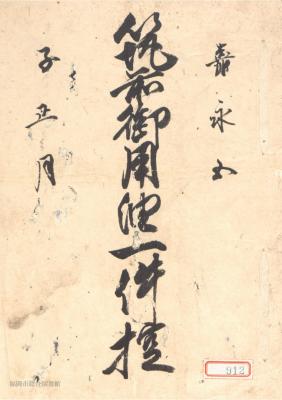 嘉永五
筑前御用達一件控
子五月
912
福岡市総合図書館